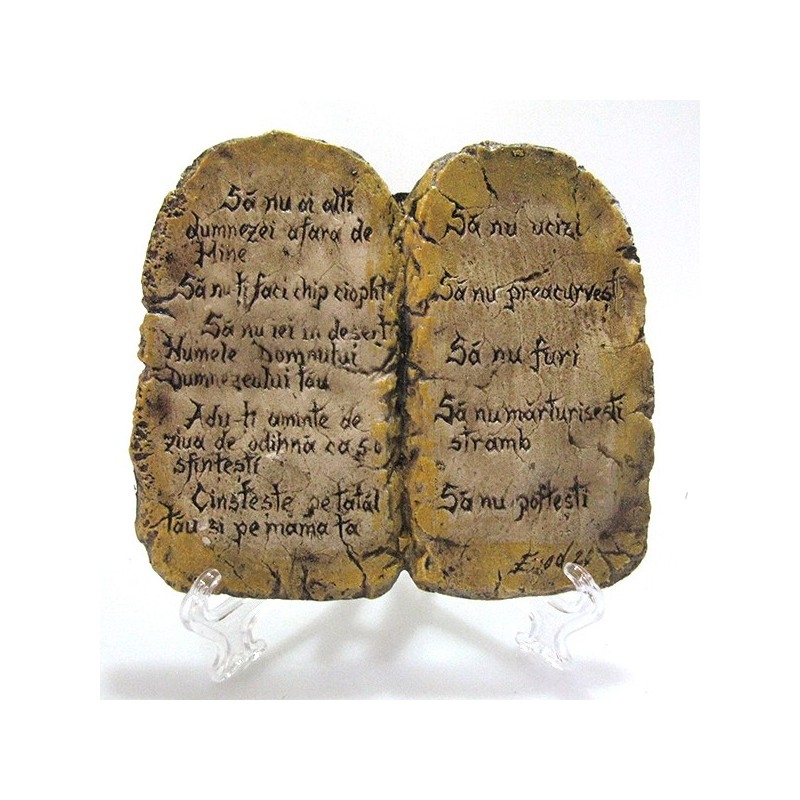 Să nu ai alti
dumnezei afara de
Mine
Să nu ti faci chip cioplit
Să nu iei in deşert
Numele Domnului
Dumnezeului tău
Adu-ţi aminte de
ziua de odihnă ca s o
sfinţeşti
Cinsteşte pe tatăl
tău si pe mama ta
Să nu ucizi
Să nu preacurveşti
Să nu furi
Să nu mărturiseşti
stramb
Să nu pofteşti
Exod 20